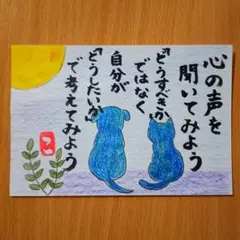 心の声を
聞いてみよう
「どうすべきか」
ではなく
自分が
「どうしたいか」
で考えてみよう